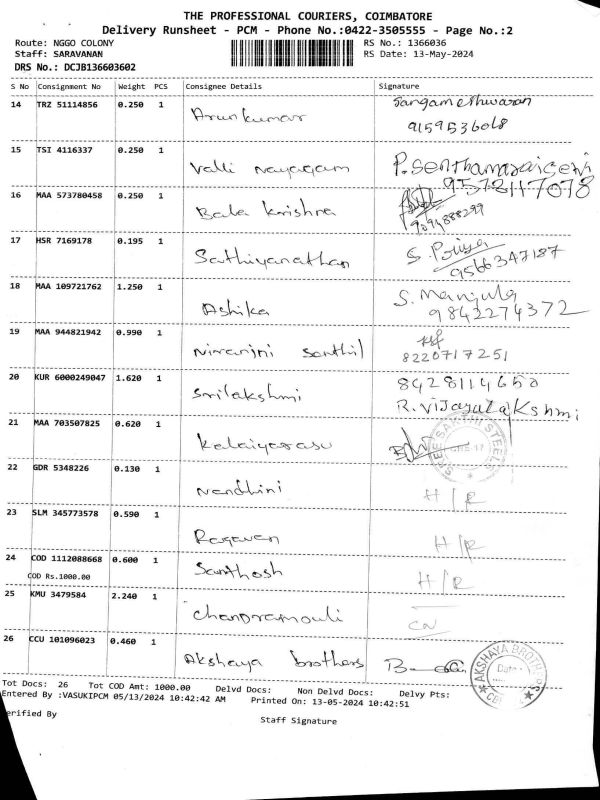 THE PROFESSIONAL COURIERS, COIMBATORE
Delivery Runsheet - PCM - Phone No.:0422-3505555 - Page No.:2
Route: NGGO COLONY RS No.: 1366036
Staff: SARAVANAN RS Date: 13-May-2024
DRS No.: DCJB136603602
S No Consignment No Weight PCS Consignee Details Signature
14 TRZ 51114856 0.250 1 Arunkumar Sangameshwaran
9159536068
15 TSI 4116337 0.250 1 Valli nayagam P.Senthamaraiselvi
9578117078
16 MAA 573780458 0.250 1 Bala krishna
9094888299
17 HSR 7169178 0.195 1 Sathiyanathan S. Priya
9566347187
18 MAA 109721762 1.250 1 Ashika S. Manjula
9842274372
19 MAA 944821942 0.990 1 Niranjni Senthil
8220717251
20 KUR 6000249047 1.620 1 Srilakshmi 8428114650
R. Vijayalakshmi
21 MAA 703507825 0.620 1 Kalaiyarasu
SREE SAKTHI STEELS
CBE-17
22 GDR 5348226 0.130 1 Nandhini H/R
23 SLM 345773578 0.590 1 Ragavan H/R
24 COD 1112088668 0.600 1 Santhosh H/R
COD Rs.1000.00
25 KMU 3479584 2.240 1 Chandramouli CN
26 CCU 101096023 0.460 1 Akshaya brothers
AKSHAYA BROTHERS
Date:
Tot Docs: 26 Tot COD Amt: 1000.00 Delvd Docs: Non Delvd Docs: Delvy Pts:
Entered By :VASUKIPCM 05/13/2024 10:42:42 AM Printed On: 13-05-2024 10:42:51
erified By
Staff Signature